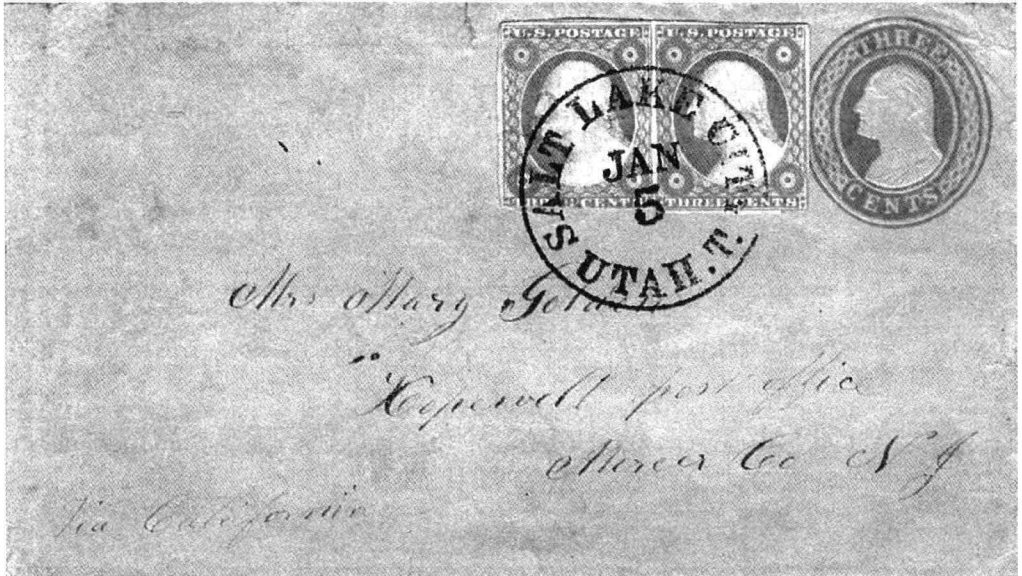 U.S. POSTAGE U.S. POSTAGE
THREE CENTS THREE CENTS
THREE CENTS
SALT LAKE CITY
JAN
5
UTAH.T.
Mrs Mary
Hopewell post office
Mercer Co N J
Via California